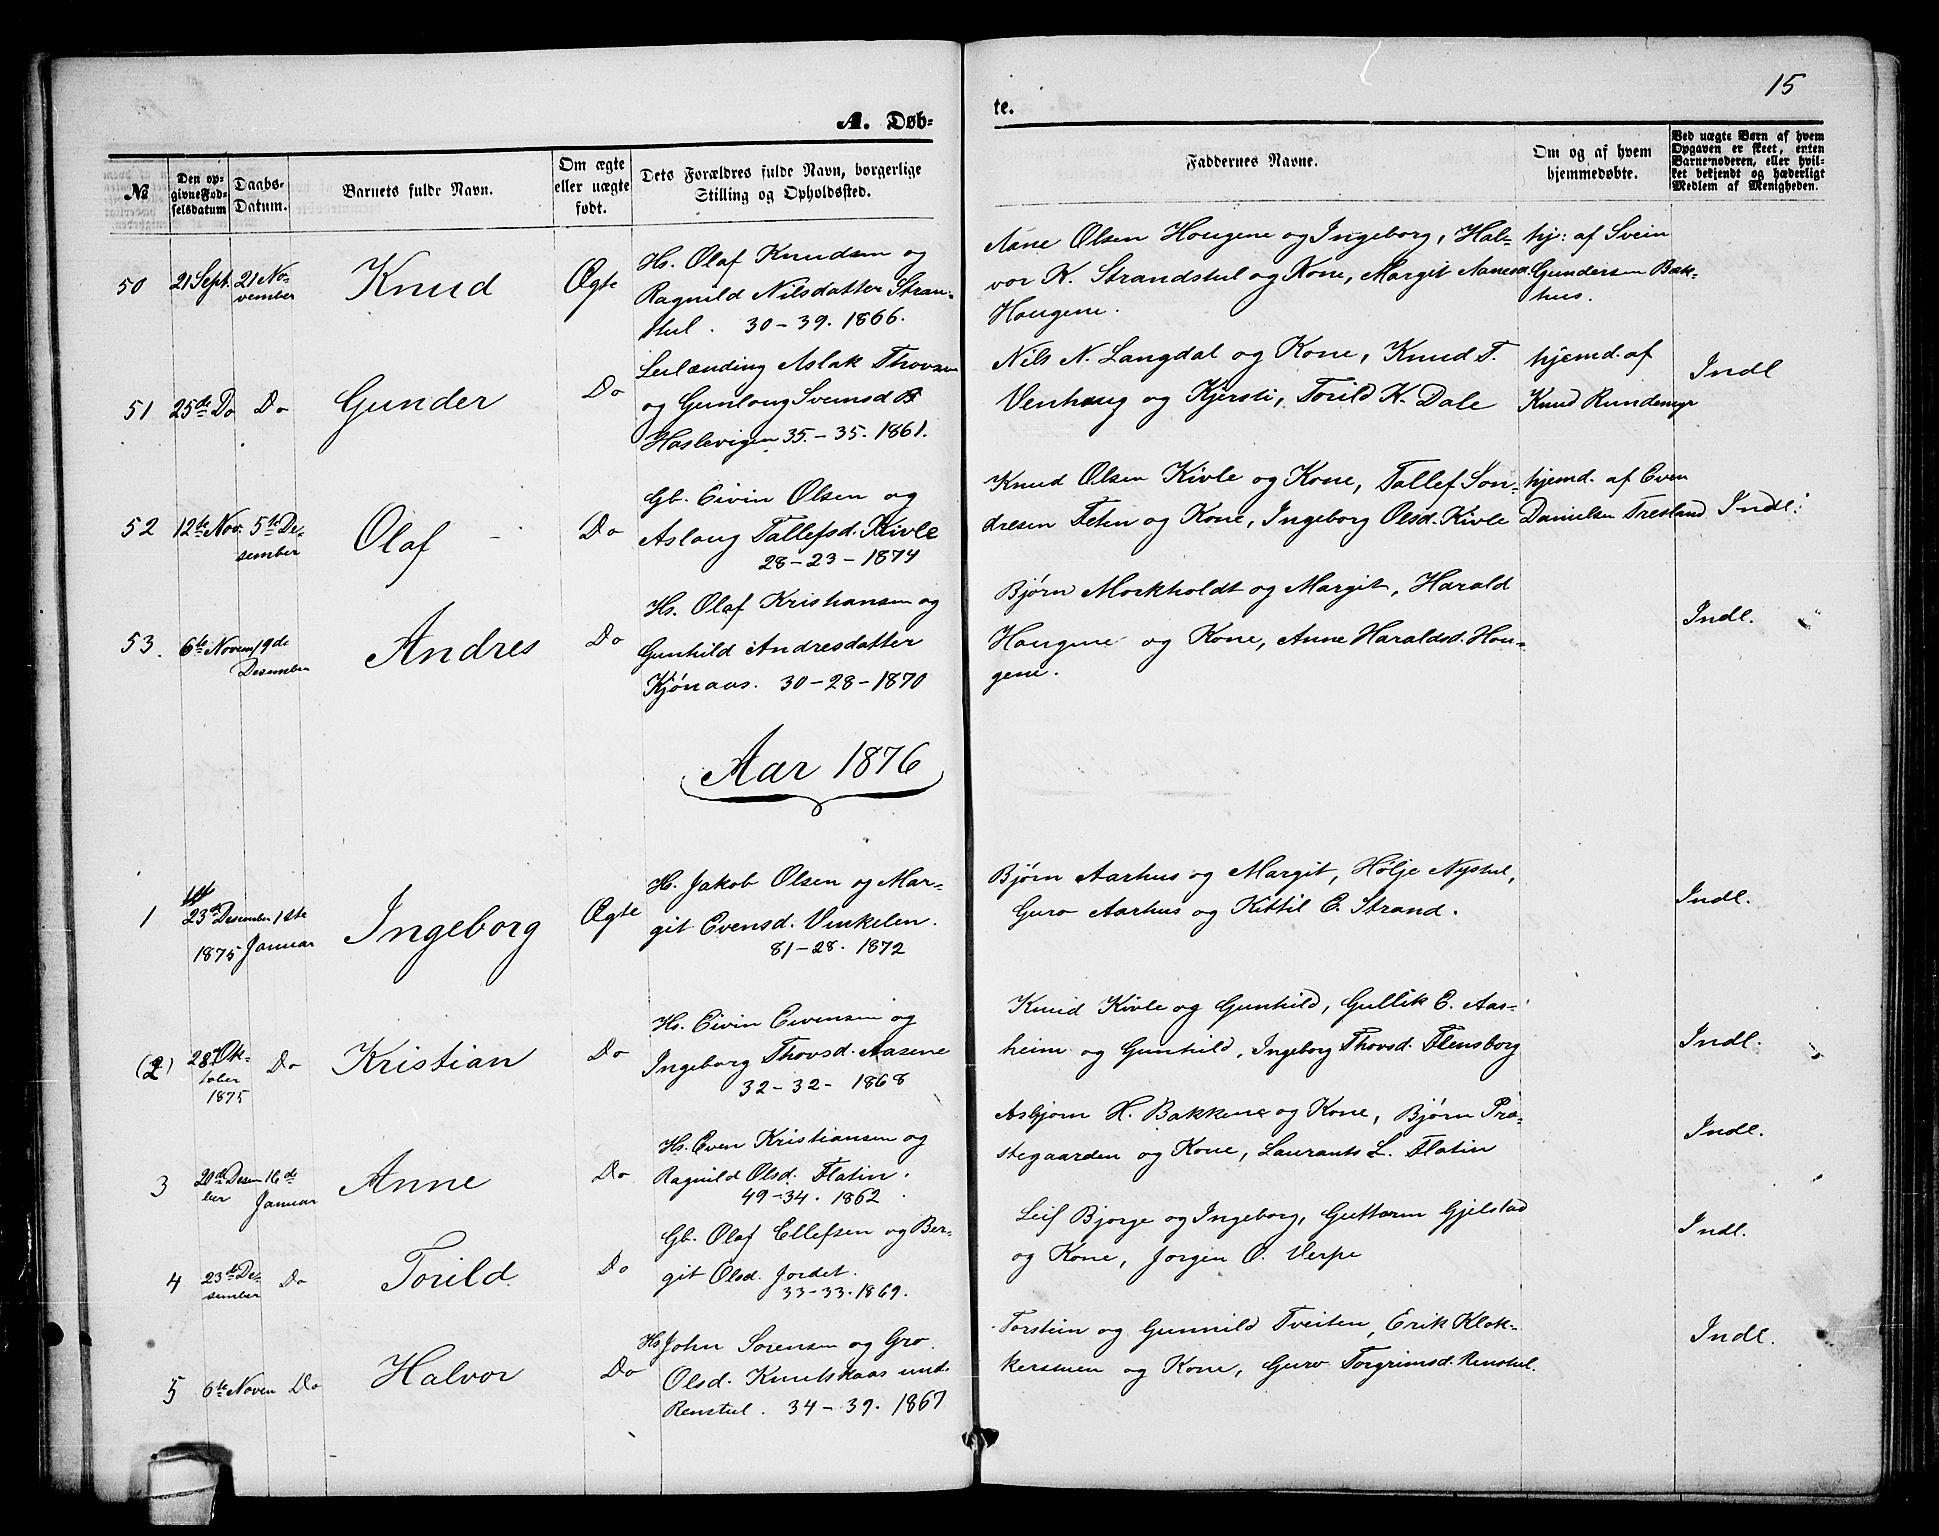 15
A. Døb-
te.
№
Den op-
givne Fød-
selsdatum
Daabs-
Datum.
Barnets fulde Navn.
Om ægte
eller uægte
født.
Dets Forældres fulde Navn, borgerlige
Stilling og Opholdssted.
Faddernes Navne.
Om og af hvem
hjemmedøbte.
Ved uægte Børn af hvem
Opgaven er skeet, enten
Barnemoderen, eller hvil-
ket bekjendt og hæderligt
Medlem af Menigheden.
50
21 Sept.
21 No-
vember
Knud
Ægte
Hs. Olaf Knudsen og
Ragnild Nilsdatter Stran-
stul. 30-39. 1866.
Aane Olsen Hougene og Ingeborg, Hal-
vor K. Strandstul og Kone, Margit Aanesd.
Hougene.
hj: af Svein
Gundersen Bak-
hus.
51
25de Do
Do
Gunder
Do
Leilænding Aslak Thovsen
og Gunloug Svensd
Haslevigen 35.-35. 1861.
Nils N. Langdal og Kone, Knud T.
Venhoug og Kjersti, Torild K. Dale
hjemd. af
Knud Rundemyr
Indl
52
12te Nov.
5te De-
sember
Olaf
Do
Gb. Eivin Olsen og
Aslaug Tallefsd. Kivle
28-23-1874
Knud Olsen Kivle og Kone, Tallef Son-
dresen Tetin og Kone, Ingeborg Olsd. Kivle
hjemd. af Even
Danielsen Tresland
Indl:
53.
6te Novem
19de
Desember
Andres
Do
Hs. Olaf Kristiansen og
Gunhild Andresdatter
Kjónaas. 30-28-1870
Bjørn Morkholdt og Margit, Harald
Hougene og Kone, Anne Haraldsd. Hou-
gene.
Indl.
Aar 1876
1
23de Desember
1875
1ste
Januar
Ingeborg
Ægte
H. Jakob Olsen og Mar-
git Evensd. Vinkelen.
81-28. 1872
Bjørn Aarhus og Margit, Hølje Nystul,
Guro Aarhus og Kittil E. Strand.
Indl.
(2)
28 Ok-
tober
1875
Do
Kristian
Do
Hs. Eivin Evensen og
Ingeborg Thovsd. Aasene
32-32- 1868
Knud Kivle og Gunhild, Gullik E. Aas-
heim og Gunhild, Ingeborg Thovsd. Flensborg
Indl.
3
20de Desem
ber
16de
Januar
Anne
Do
Hs. Even Kristiansen og
Ragnild Olsd. Flatin.
49-34. 1862.
Asbjørn H. Bakkene og Kone, Bjørn Præ-
stegaarden og Kone, Laurants L. Flatin
Indl.
4
23de De-
sember
Do
Torild
Do
Gb. Olaf Ellefsen og Ber-
git Olsd. Jordet.
33-33. 1869.
Leif Bjorge og Ingeborg, Guttorm Gjelstad
og Kone, Jorgen O. Verpe
Indl.
5
6te Novem
Do
Halvor
Do
Hs John Sorensen og Gro
Olsd. Knutskaas und.
Renstul. 34-39. 1867
Torstein og Gunnild Tveiten, Erik Klok-
kerstuen og Kone, Guro Torgrimsd. Renstul.
Indl.